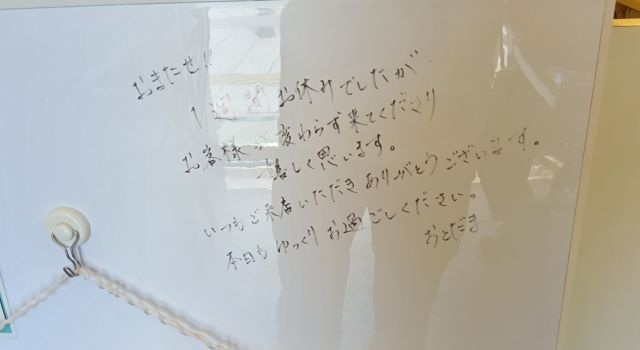 おまたせ!!
1週間お休みでしたが、
お客様が変わらず来てくださり
嬉しく思います。
いつもご来店いただきありがとうございます。
本日もゆっくりお過ごしください。
おとだま